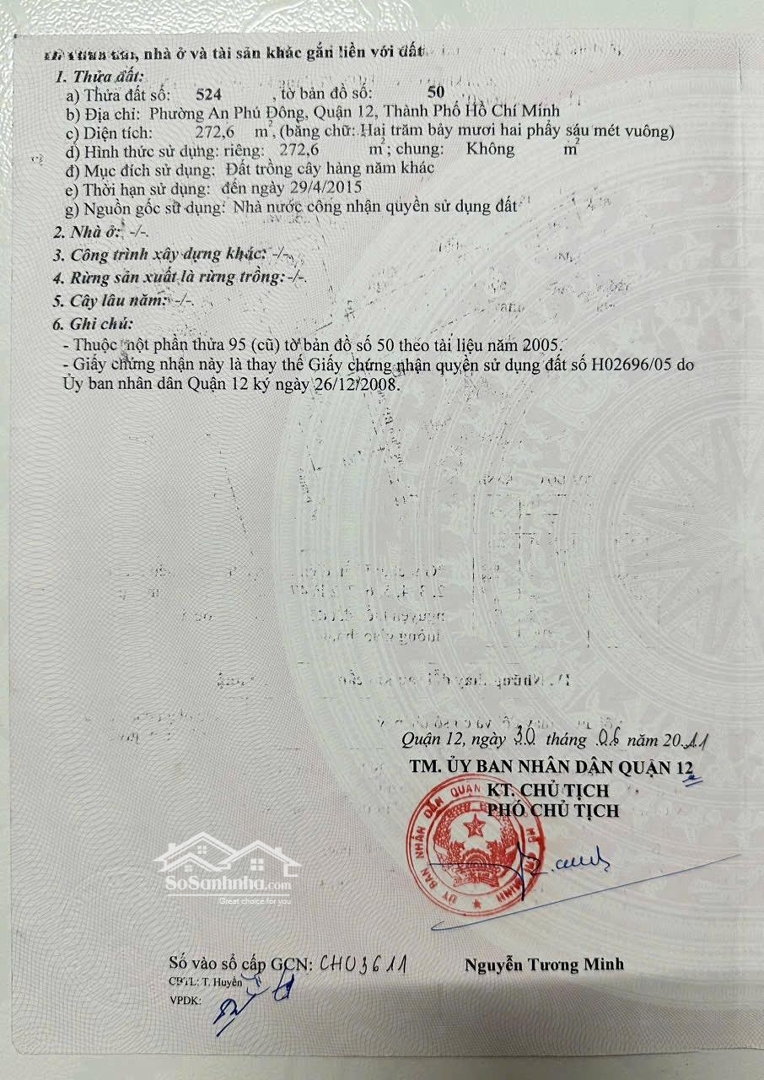 nhà ở và tài sản khác gắn liền với đất
1. Thửa đất:
a) Thửa đất số: 524 , tờ bản đồ số: 50
b) Địa chỉ: Phường An Phú Đông, Quận 12, Thành Phố Hồ Chí Minh
c) Diện tích: 272,6 m², (bằng chữ: Hai trăm bảy mươi hai phẩy sáu mét vuông)
d) Hình thức sử dụng: riêng: 272,6 m²; chung: Không m²
đ) Mục đích sử dụng: Đất trồng cây hàng năm khác
e) Thời hạn sử dụng: đến ngày 29/4/2015
g) Nguồn gốc sử dụng: Nhà nước công nhận quyền sử dụng đất
2. Nhà ở: -/-.
3. Công trình xây dựng khác: -/-.
4. Rừng sản xuất là rừng trồng: -/-.
5. Cây lâu năm: -/-.
6. Ghi chú:
- Thuộc một phần thửa 95 (cũ) tờ bản đồ số 50 theo tài liệu năm 2005.
- Giấy chứng nhận này là thay thế Giấy chứng nhận quyền sử dụng đất số H02696/05 do
Ủy ban nhân dân Quận 12 ký ngày 26/12/2008.
Quận 12, ngày 30 tháng 06 năm 2011
TM. ỦY BAN NHÂN DÂN QUẬN 12
KT. CHỦ TỊCH
PHÓ CHỦ TỊCH
SoSanhnha.com
Great choice for you
Số vào sổ cấp GCN: CH03611
Nguyễn Tương Minh
CBTL: T. Huyền
VPDK: